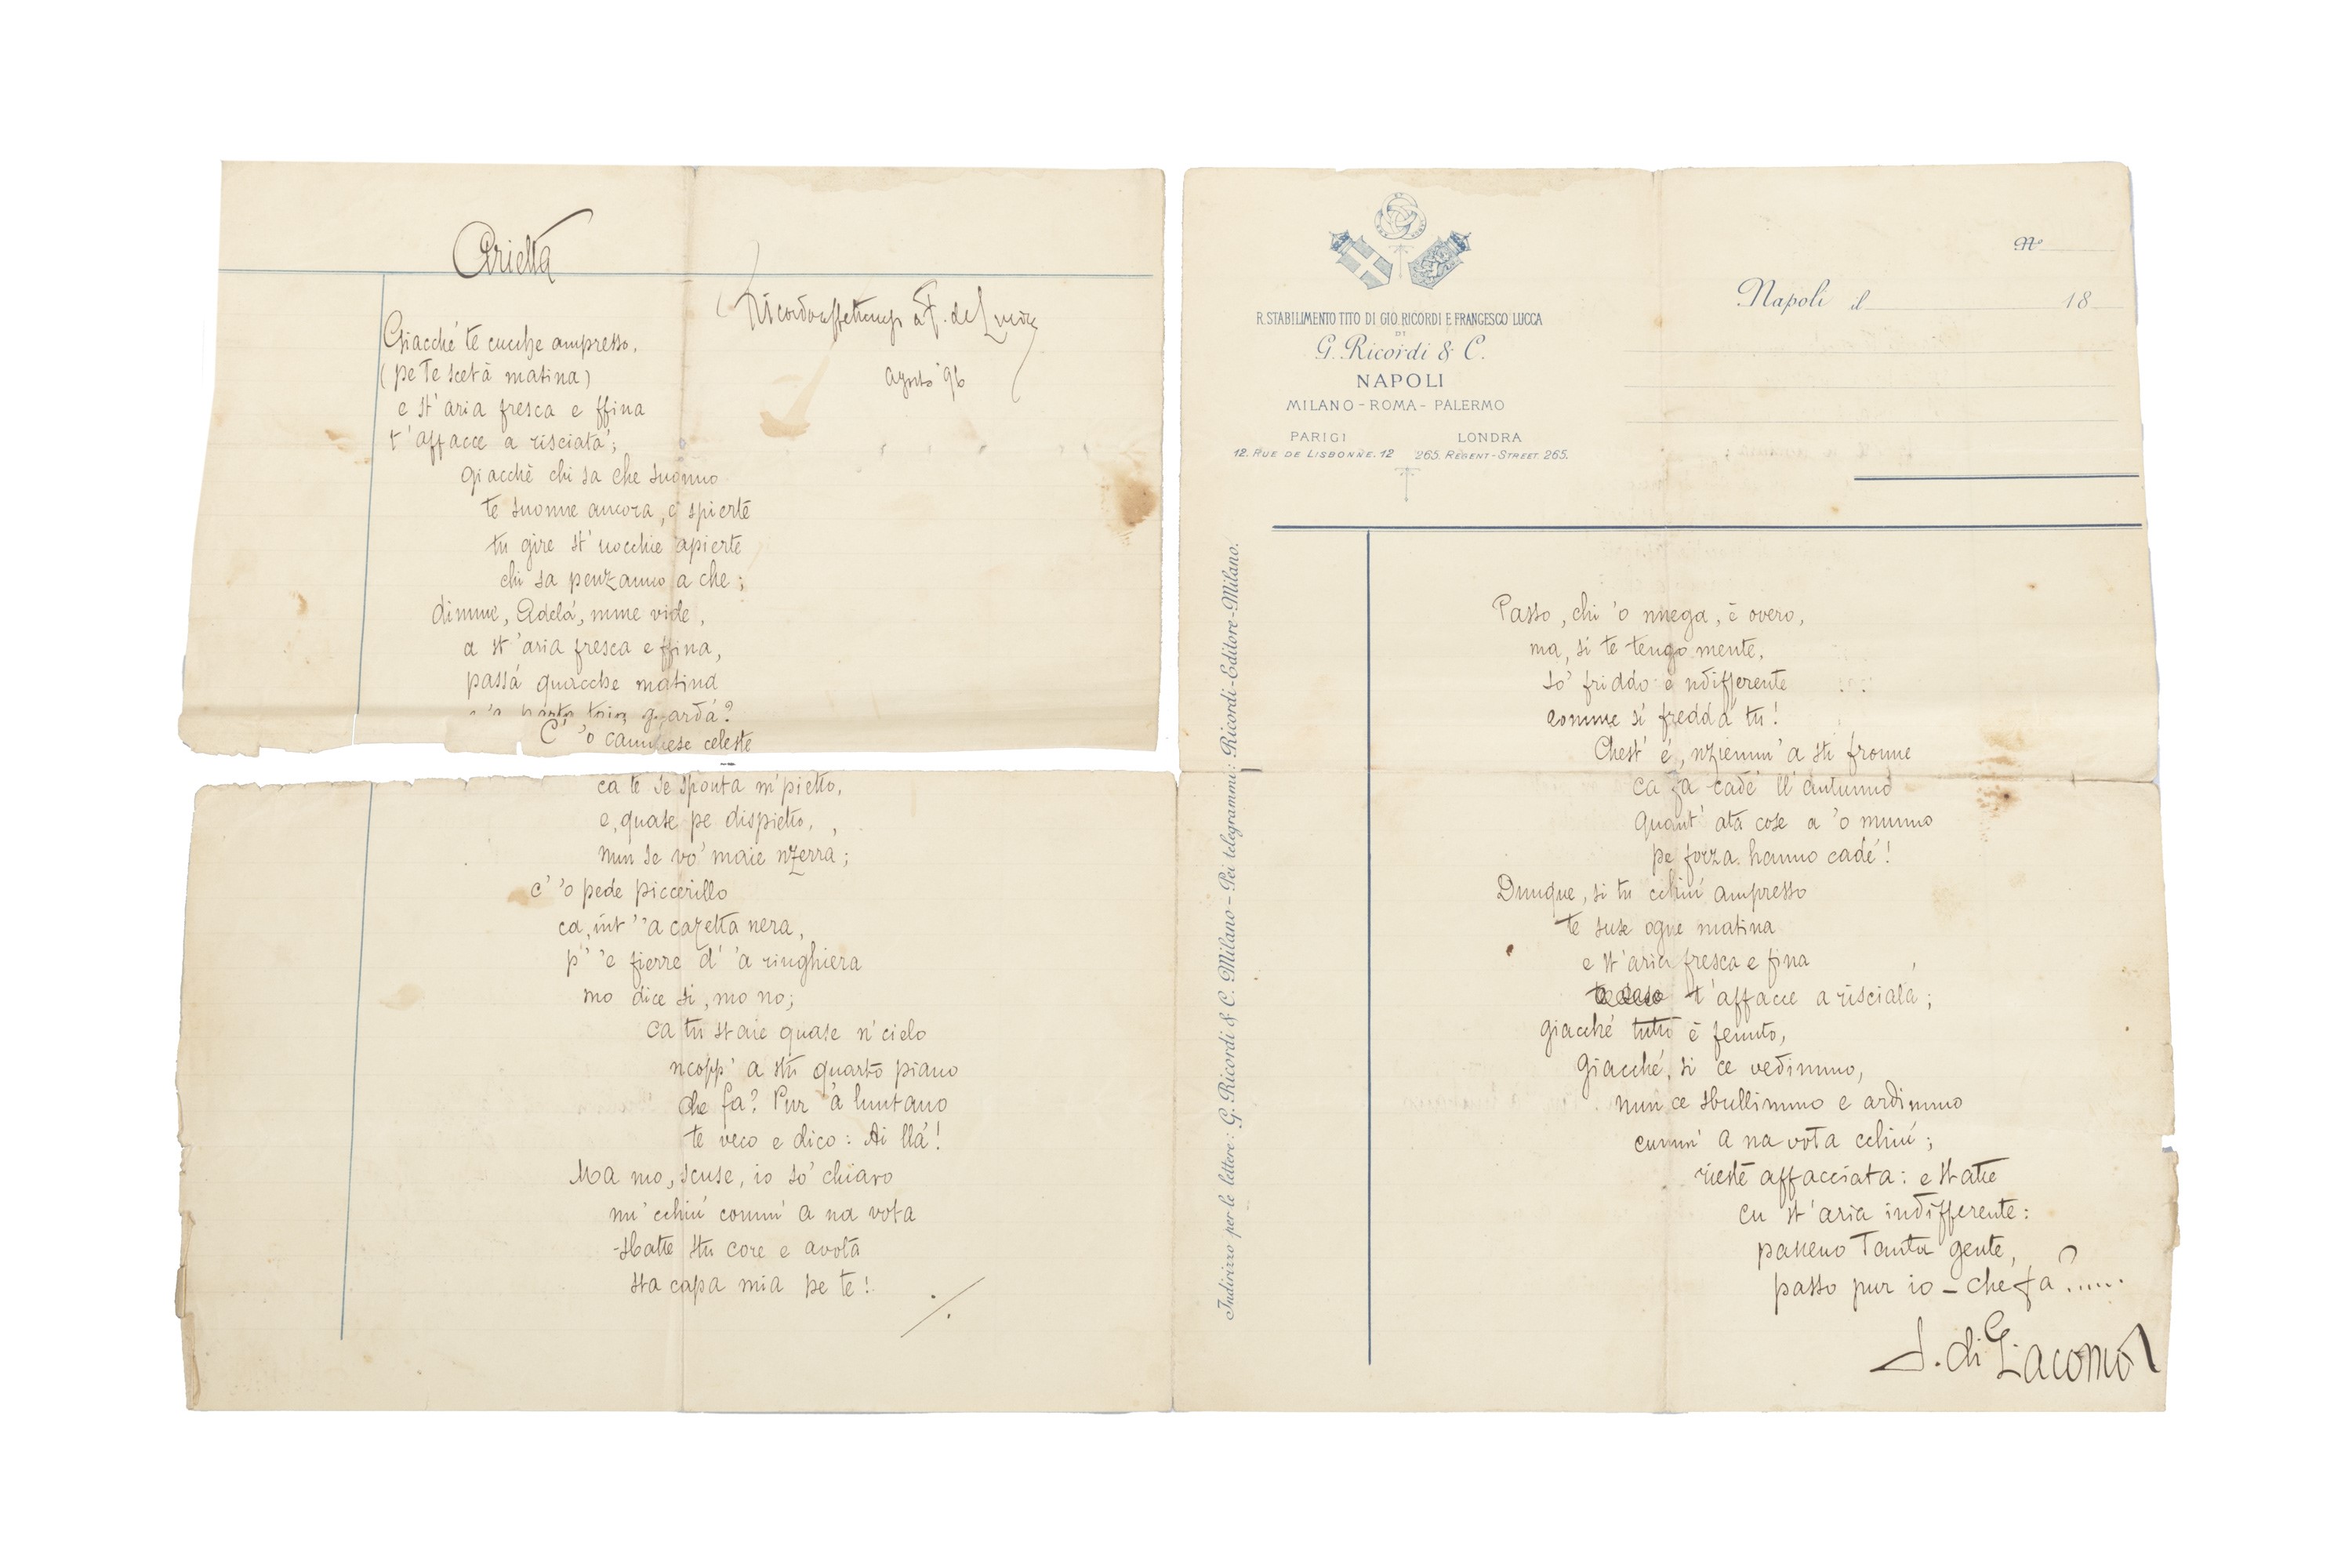 Arietta
Ricordo affettuoso a F. de Luca
Agosto '96
Giacché te cucche ampresso,
(pe te scetà matina)
e st' aria fresca e ffina
t' affacce a risciatà;
giacché chi sa che suonno
te suonne ancora, e spierte
tu gire st' uocchie apierte
chi sa penzanno a che;
dimme, Adelà, mme vide,
a st' aria fresca e ffina,
passà quacche matina
guardà?
C' 'o cammese celeste
ca te se sponta m'pietto,
e, quase pe dispietto,
nun se vo' maie nzerrà;
c' 'o pede piccerillo
ca, int' 'a cazetta nera,
p' 'e fierre d' 'a ringhiera
mo dice si, mo no;
ca tu staie quase n'cielo
ncopp' a stu quarto piano
che fa? Pur 'a luntano
te veco e dico: Ai llà!
Ma mo, scuse, io so' chiaro
nu' cchiú comm' a na vota
sbatte stu core e avota
sta capa mia pe te!
./.
R. STABILIMENTO TITO DI GIO. RICORDI E FRANCESCO LUCCA
DI
G. Ricordi & C.
NAPOLI
MILANO - ROMA - PALERMO
PARIGI LONDRA
12. RUE DE LISBONNE. 12 265. REGENT-STREET. 265.
No
Napoli il 18
Indirizzo per le lettere: G. Ricordi & C. Milano - Pei telegrammi: Ricordi-Editore-Milano.
Passo, chi 'o nnega, è overo,
ma, si te tengo mente,
so' friddo e ndifferente
comme si fredda tu!
Chest' è, nziemm' a sti fronne
ca fa cadé ll' autunno
quant' ata cose a 'o munno
pe forza hanno cadé!
Dunque, si tu cchiú ampresso
te suse ogne matina
e st' aria fresca e fina
t' affacce a riscialà;
giacché tutto è fenuto,
giacché, si ce vedimmo,
nun ce sbullimmo e ardimmo
comm' a na vota cchiú;
rieste affacciata: e statte
cu st' aria indifferente:
passeno tanta gente,
passo pur io - che fa?.....
S. di Giacomo